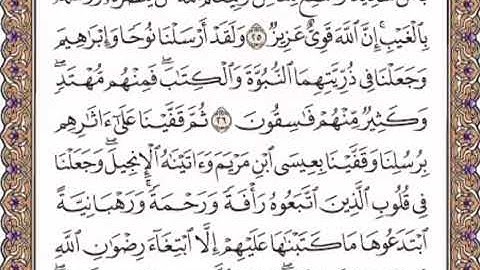 بِالْغَيْبِ ۚ إِنَّ اللَّهَ قَوِيٌّ عَزِيزٌ ٢٥ وَلَقَدْ أَرْسَلْنَا نُوحًا وَإِبْرَاهِيمَ
وَجَعَلْنَا فِي ذُرِّيَّتِهِمَا النُّبُوَّةَ وَالْكِتَابَ ۖ فَمِنْهُم مُّهْتَدٍ ۖ
وَكَثِيرٌ مِّنْهُمْ فَاسِقُونَ ٢٦ ثُمَّ قَفَّيْنَا عَلَىٰ آثَارِهِم
بِرُسُلِنَا وَقَفَّيْنَا بِعِيسَى ابْنِ مَرْيَمَ وَآتَيْنَاهُ الْإِنجِيلَ ۖ وَجَعَلْنَا
فِي قُلُوبِ الَّذِينَ اتَّبَعُوهُ رَأْفَةً وَرَحْمَةً ۚ وَرَهْبَانِيَّةً
ابْتَدَعُوهَا مَا كَتَبْنَاهَا عَلَيْهِمْ إِلَّا ابْتِغَاءَ رِضْوَانِ اللَّهِ